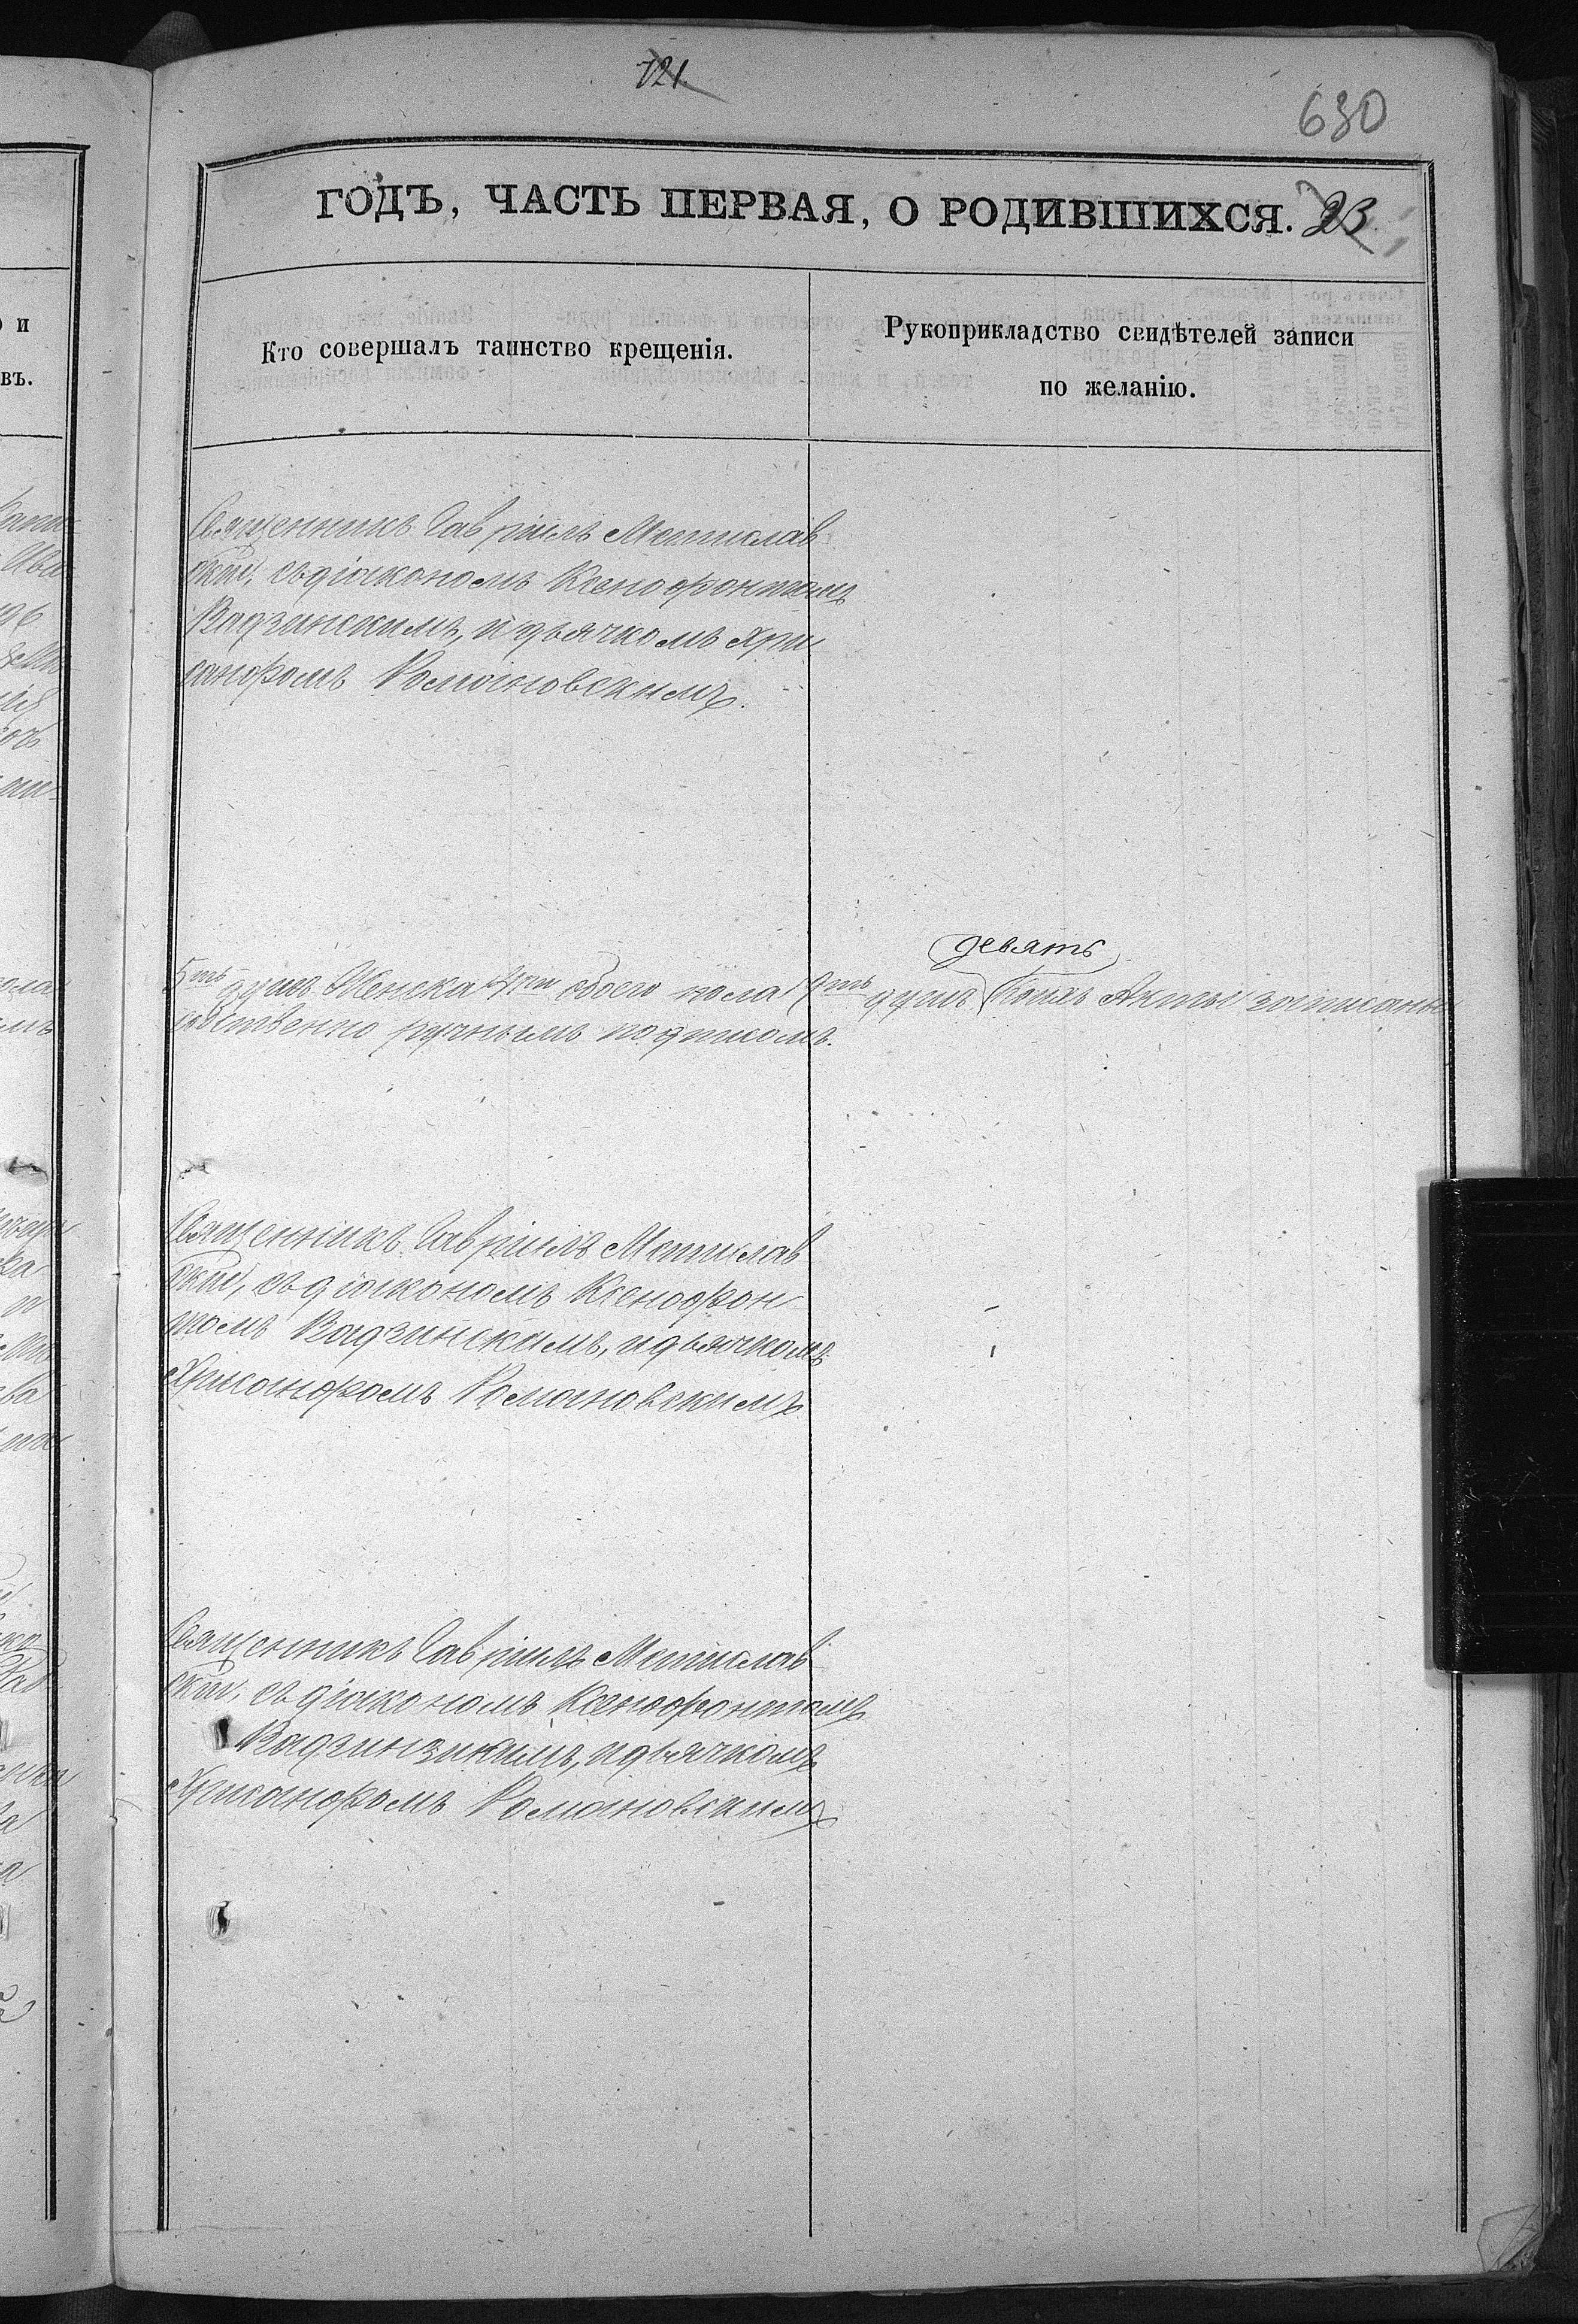 121
630
ГОДЪ, ЧАСТЬ ПЕРВАЯ, О РОДИВШИХСЯ. 23
Кто совершалъ таинство крещенія.
Рукоприкладство свидѣтелей записи
по желанію.
Священникъ Гавріилъ Мстислав
скій, съ діакономъ Ксенофонтомъ
Вадзинскимъ, и дьячкомъ Хри
санфомъ Романовскимъ.
девять
5ть душъ Женска обоего пола 9ть душъ (коихъ Акты записаны
собственно ручнымъ подписомъ.
Священникъ Гавріилъ Мстислав
скій, съ діакономъ Ксенофон
томъ Вадзинскимъ, и дьячкомъ
Хрисанфомъ Романовскимъ
Священникъ Гавріилъ Мстислав
скій, съ діакономъ Ксенофонтомъ
Вадзинзкимъ, и дьячкомъ
Хрисанфомъ Романовскимъ